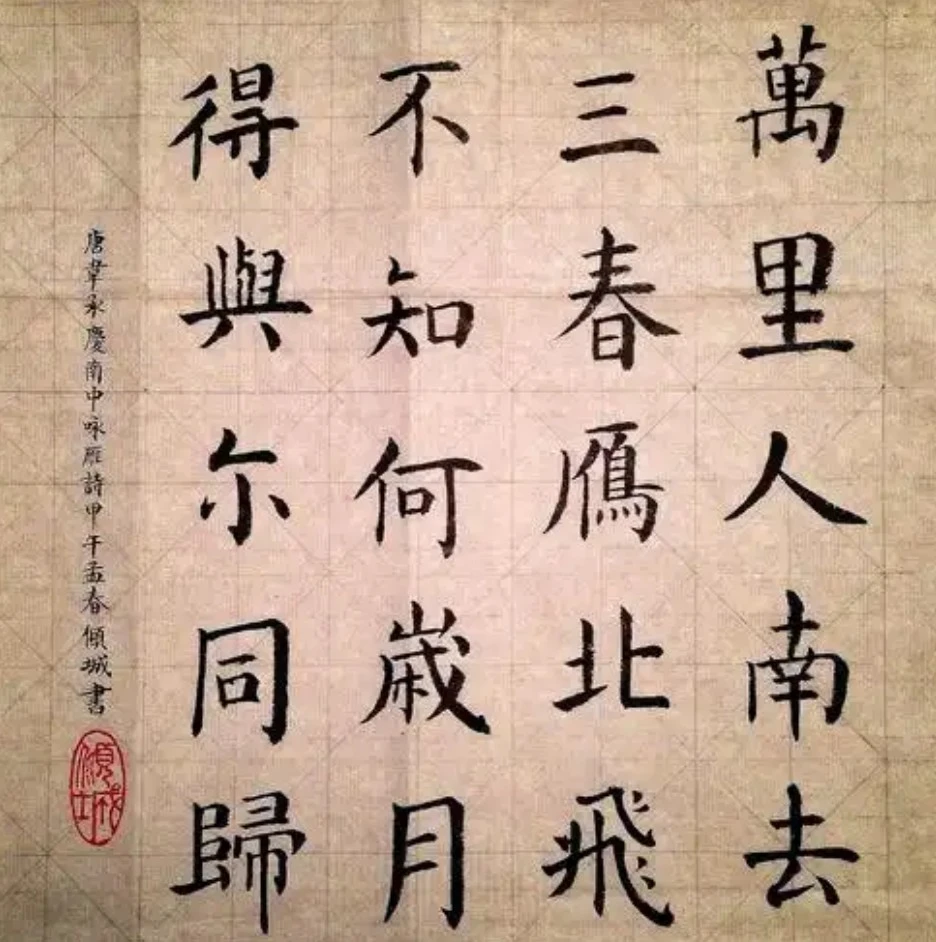 萬里人南去
三春鴈北飛
不知何歲月
得與尔同歸
唐韋承慶南中咏雁詩甲午孟春傾城書
傾城